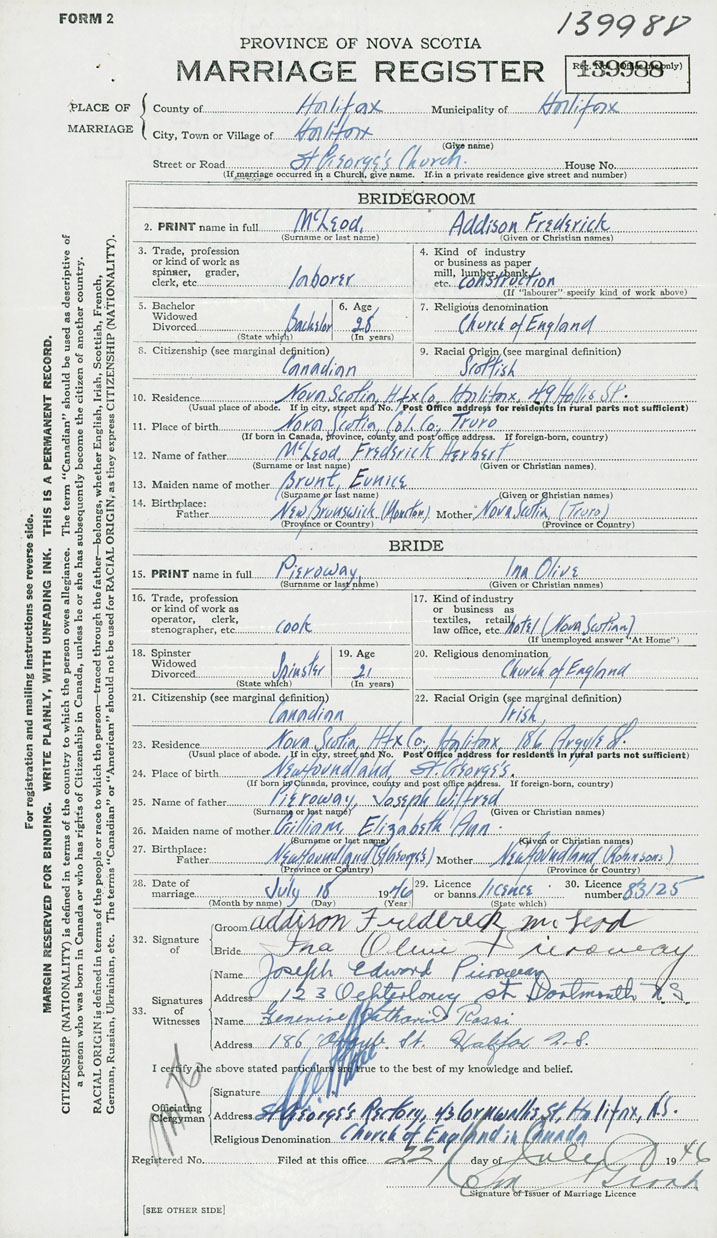 FORM 2
139988
PROVINCE OF NOVA SCOTIA
MARRIAGE REGISTER
Reg. No. (Office use only)
139988
PLACE OF MARRIAGE
County of Halifax Municipality of Halifax
City, Town or Village of Halifax
(Give name)
Street or Road St George's Church. House No.
(If marriage occurred in a Church, give name. If in a private residence give street and number)
BRIDEGROOM
2. PRINT name in full McLeod, Addison Frederick
(Surname or last name) (Given or Christian names)
3. Trade, profession or kind of work as spinner, grader, clerk, etc. laborer
4. Kind of industry or business as paper mill, lumber, bank, etc. construction
(If "labourer" specify kind of work above)
5. Bachelor Widowed Divorced Bachelor (State which) 6. Age 28 (In years)
7. Religious denomination Church of England
8. Citizenship (see marginal definition) Canadian
9. Racial Origin (see marginal definition) Scottish
10. Residence Nova Scotia, Hfx Co, Halifax, 49 Hollis St.
(Usual place of abode. If in city, street and No. Post Office address for residents in rural parts not sufficient)
11. Place of birth Nova Scotia, Col. Co., Truro
(If born in Canada, province, county and post office address. If foreign-born, country)
12. Name of father McLeod, Frederick Herbert
(Surname or last name) (Given or Christian names)
13. Maiden name of mother Brunt, Eunice
(Surname or last name) (Given or Christian names)
14. Birthplace: Father New Brunswick (Moncton) Mother Nova Scotia (Truro)
(Province or Country) (Province or Country)
BRIDE
15. PRINT name in full Pieroway, Ina Olive
(Surname or last name) (Given or Christian names)
16. Trade, profession or kind of work as operator, clerk, stenographer, etc. cook
17. Kind of industry or business as textiles, retail, law office, etc. hotel (Nova Scotian)
(If unemployed answer "At Home")
18. Spinster Widowed Divorced Spinster (State which) 19. Age 21 (In years)
20. Religious denomination Church of England
21. Citizenship (see marginal definition) Canadian
22. Racial Origin (see marginal definition) Irish
23. Residence Nova Scotia, Hfx Co, Halifax 186 Argyle St.
(Usual place of abode. If in city, street and No. Post Office address for residents in rural parts not sufficient)
24. Place of birth Newfoundland, St. George's.
(If born in Canada, province, county and post office address. If foreign-born, country)
25. Name of father Pieroway, Joseph Wilfred
(Surname or last name) (Given or Christian names)
26. Maiden name of mother Gilliam, Elizabeth Ann.
(Surname or last name) (Given or Christian names)
27. Birthplace: Father Newfoundland Mother Newfoundland
(Province or Country) (Province or Country)
28. Date of marriage July 18 1946
(Month by name) (Day) (Year)
29. Licence or banns licence (State which)
30. Licence number 83125
32. Signature of
Groom Addison Frederick McLeod
Bride Ina Olive Pieroway
33. Signatures of Witnesses
Name Joseph Edward Pieroway
Address 123 Ochterloney St Dartmouth N.S.
Name Genevieve Catharine Rossi
Address 186 Argyle St. Halifax N.S.
I certify the above stated particulars are true to the best of my knowledge and belief.
Officiating Clergyman
Signature
Address St George's Rectory, 43 Cornwallis St, Halifax, N.S.
Religious Denomination Church of England in Canada
Registered No. Filed at this office 22 day of July 1946
Signature of Issuer of Marriage Licence
[SEE OTHER SIDE]
For registration and mailing instructions see reverse side.
MARGIN RESERVED FOR BINDING. WRITE PLAINLY, WITH UNFADING INK. THIS IS A PERMANENT RECORD.
CITIZENSHIP (NATIONALITY) is defined in terms of the country to which the person owes allegiance. The term "Canadian" should be used as descriptive of
a person who was born in Canada or who has rights of Citizenship in Canada, unless he or she has subsequently become the citizen of another country.
RACIAL ORIGIN is defined in terms of the people or race to which the person—traced through the father—belongs, whether English, Irish, Scottish, French,
German, Russian, Ukrainian, etc. The terms "Canadian" or "American" should not be used for RACIAL ORIGIN, as they express CITIZENSHIP (NATIONALITY).